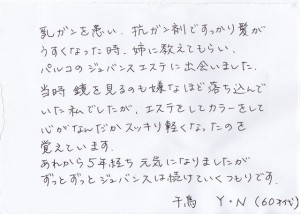 乳ガンを患い、抗ガン剤ですっかり髪が
うすくなった時、姉に教えてもらい、
パルコのジュバンスエステに出会いました。
当時 鏡を見るのも嫌なほど落ち込んで
いた私でしたが、エステをしてカラーをして
心がなんだかスッキリ軽くなったのを
覚えています。
あれから5年経ち 元気になりましたが
ずっとずっとジュバンスは続けていくつもりです。
Y・N(60才代)